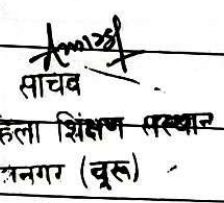 साचव
हिला शिक्षण संस्थान
जनगर (चूरू)